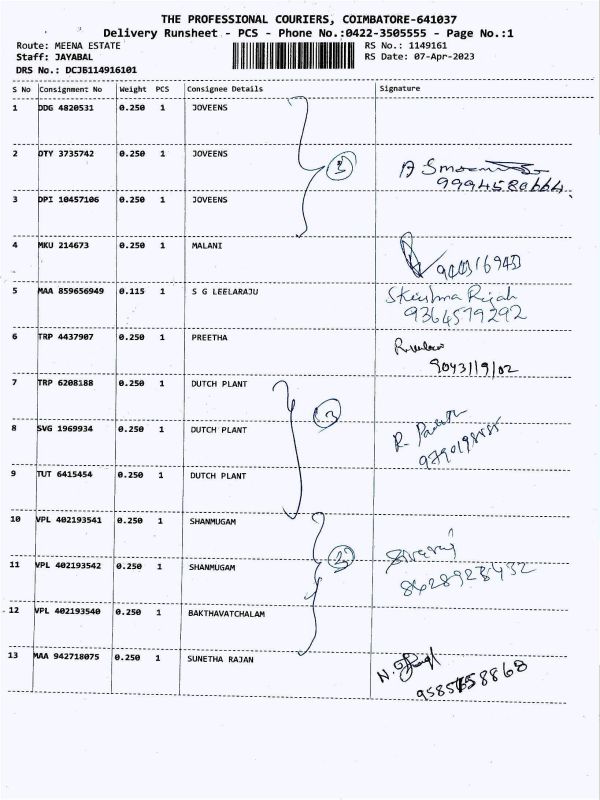 THE PROFESSIONAL COURIERS, COIMBATORE-641037
Delivery Runsheet - PCS - Phone No.:0422-3505555 - Page No.:1
Route: MEENA ESTATE RS No.: 1149161
Staff: JAYABAL RS Date: 07-Apr-2023
DRS No.: DCJB114916101
S No Consignment No Weight PCS Consignee Details Signature
1 DDG 4820531 0.250 1 JOVEENS
2 DTY 3735742 0.250 1 JOVEENS
3 DPI 10457106 0.250 1 JOVEENS
9994580664
4 MKU 214673 0.250 1 MALANI
5 MAA 859656949 0.115 1 S G LEELARAJU
9364579292
6 TRP 4437907 0.250 1 PREETHA
7 TRP 6208188 0.250 1 DUTCH PLANT
3
8 SVG 1969934 0.250 1 DUTCH PLANT
9 TUT 6415454 0.250 1 DUTCH PLANT
10 VPL 402193541 0.250 1 SHANMUGAM
11 VPL 402193542 0.250 1 SHANMUGAM
8428928432
12 VPL 402193540 0.250 1 BAKTHAVATCHALAM
13 MAA 942718075 0.250 1 SUNETHA RAJAN